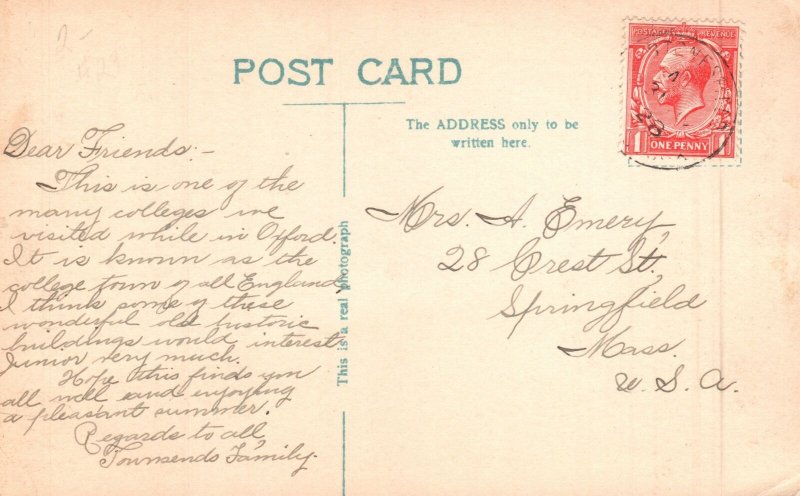 2-
POST CARD
The ADDRESS only to be
written here.
POSTAGE REVENUE
1 ONE PENNY 1
Dear Friends:-
This is one of the
many colleges we
visited while in Oxford.
It is known as the
college town of all England
I think some of these
wonderful old historic
buildings would interest
Junior very much.
Hope this finds you
all well and enjoying
a pleasant summer.
Regards to all
Townsends Family.
This is a real photograph
Mrs. A. Emery,
28 Crest St,
Springfield
Mass.
U.S.A.